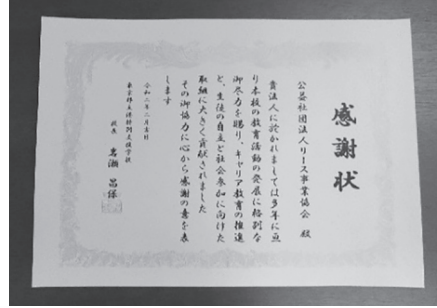 感謝状
公益社団法人リース事業協会 殿
貴法人に於かれましては多年に亘
り本校の教育活動の発展に格別な
御尽力を賜り、キャリア教育の推進
と、生徒の自立と社会参加に向けた
取組に大きく貢献されました
その御協力に心から感謝の意を表
します
令和二年二月吉日
東京都立港特別支援学校
校長